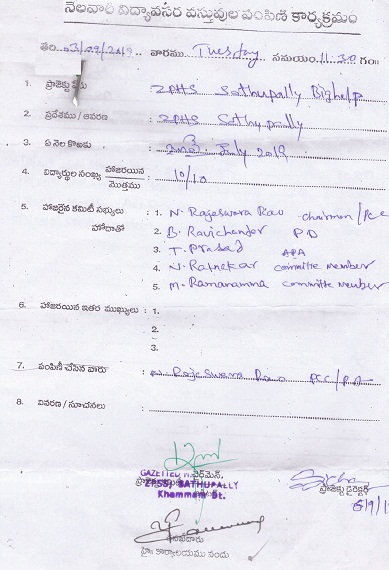 నెలవారి విద్యావసర వస్తువుల పంపిణి కార్యక్రమం
తేది..03/09/2019.. వారము Tuesday సమయం..11.30 గం॥
1. ప్రాజెక్టు పేరు : ZPHS Sathupally Bighelp
2. ప్రదేశము / ఆవరణ : ZPHS Sathupally
3. ఏ నెల కొఱకు : July 2019
4. విద్యార్థుల సంఖ్య హాజరయిన / మొత్తము : 10/10
5. హాజరైన కమిటీ సభ్యులు : 1. N. Rajeswara Rao chairman /
హోదాతో 2. B. Ravichander PD
3. T. Prasad APA
4. Ratnakar committee member
5. M. Ramanamma committee member
6. హాజరయిన ఇతర ముఖ్యులు : 1.
2.
3.
7. పంపిణీ చేసిన వారు : N. Rajeswara Rao
8. వివరణ / సూచనలు :
GAZETTED
SATHUPALLY
Khammam Dt.
ప్రాజెక్టు డైరెక్టర్
హై॥ కార్యాలయము నందు